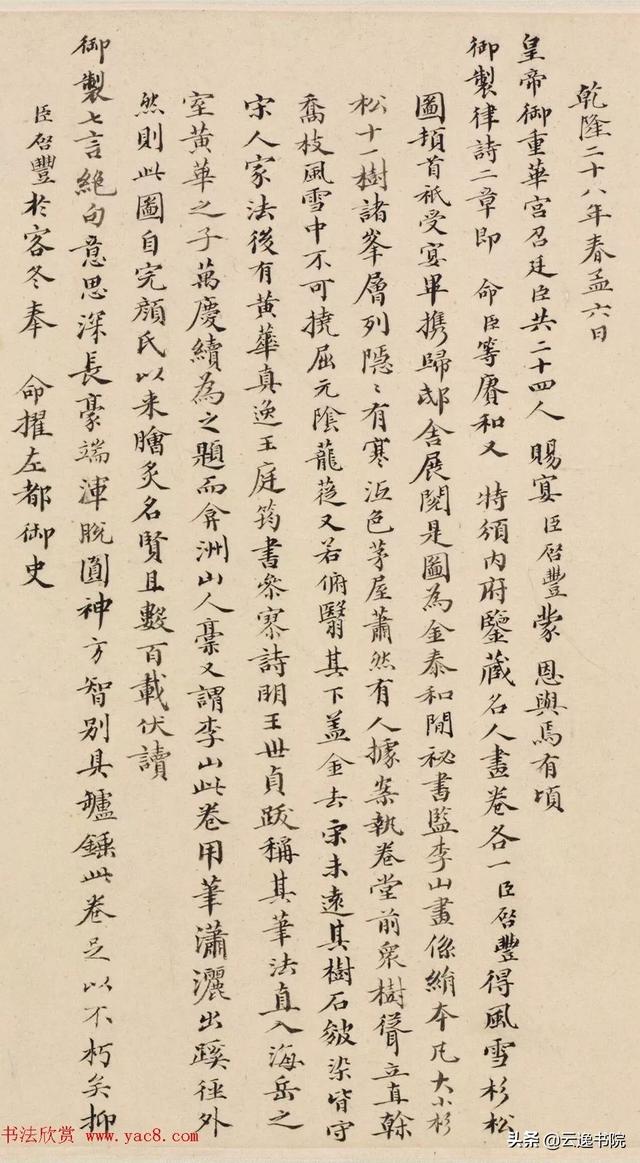 乾隆二十八年春孟六日
皇帝御重華宮召廷臣共二十四人　賜宴臣啓豐蒙　恩與焉有頃
御製律詩二章即　命臣等賡和又　特頒內府鑒藏名人畫卷各一臣啓豐得風雪杉松
圖頓首祇受宴畢攜歸邸舍展閱是圖為金泰和間祕書監李山畫係絹本凡大小杉
松十一樹諸峯層列隱〻有寒沍色茅屋蕭然有人據案執卷堂前衆樹聳立直榦
喬枝風雪中不可撓屈元陰蘢蓯又若俯翳其下盖金去宋未遠其樹石皴染皆守
宋人家法後有黃華真逸王庭筠書參寥詩明王世貞跋稱其筆法直入海岳之
室黃華之子萬慶續為之題而弇洲山人藁又謂李山此卷用筆瀟灑出蹊徑外
然則此圖自完顏氏以来膾炙名賢且數百載伏讀
御製七言絶句意思深長豪端渾脫圓神方智別具鑪錘此卷足以不朽矣抑
臣啓豐於客冬奉　命擢左都御史
书法欣赏 www.yac8.com
头条 @云逸书院